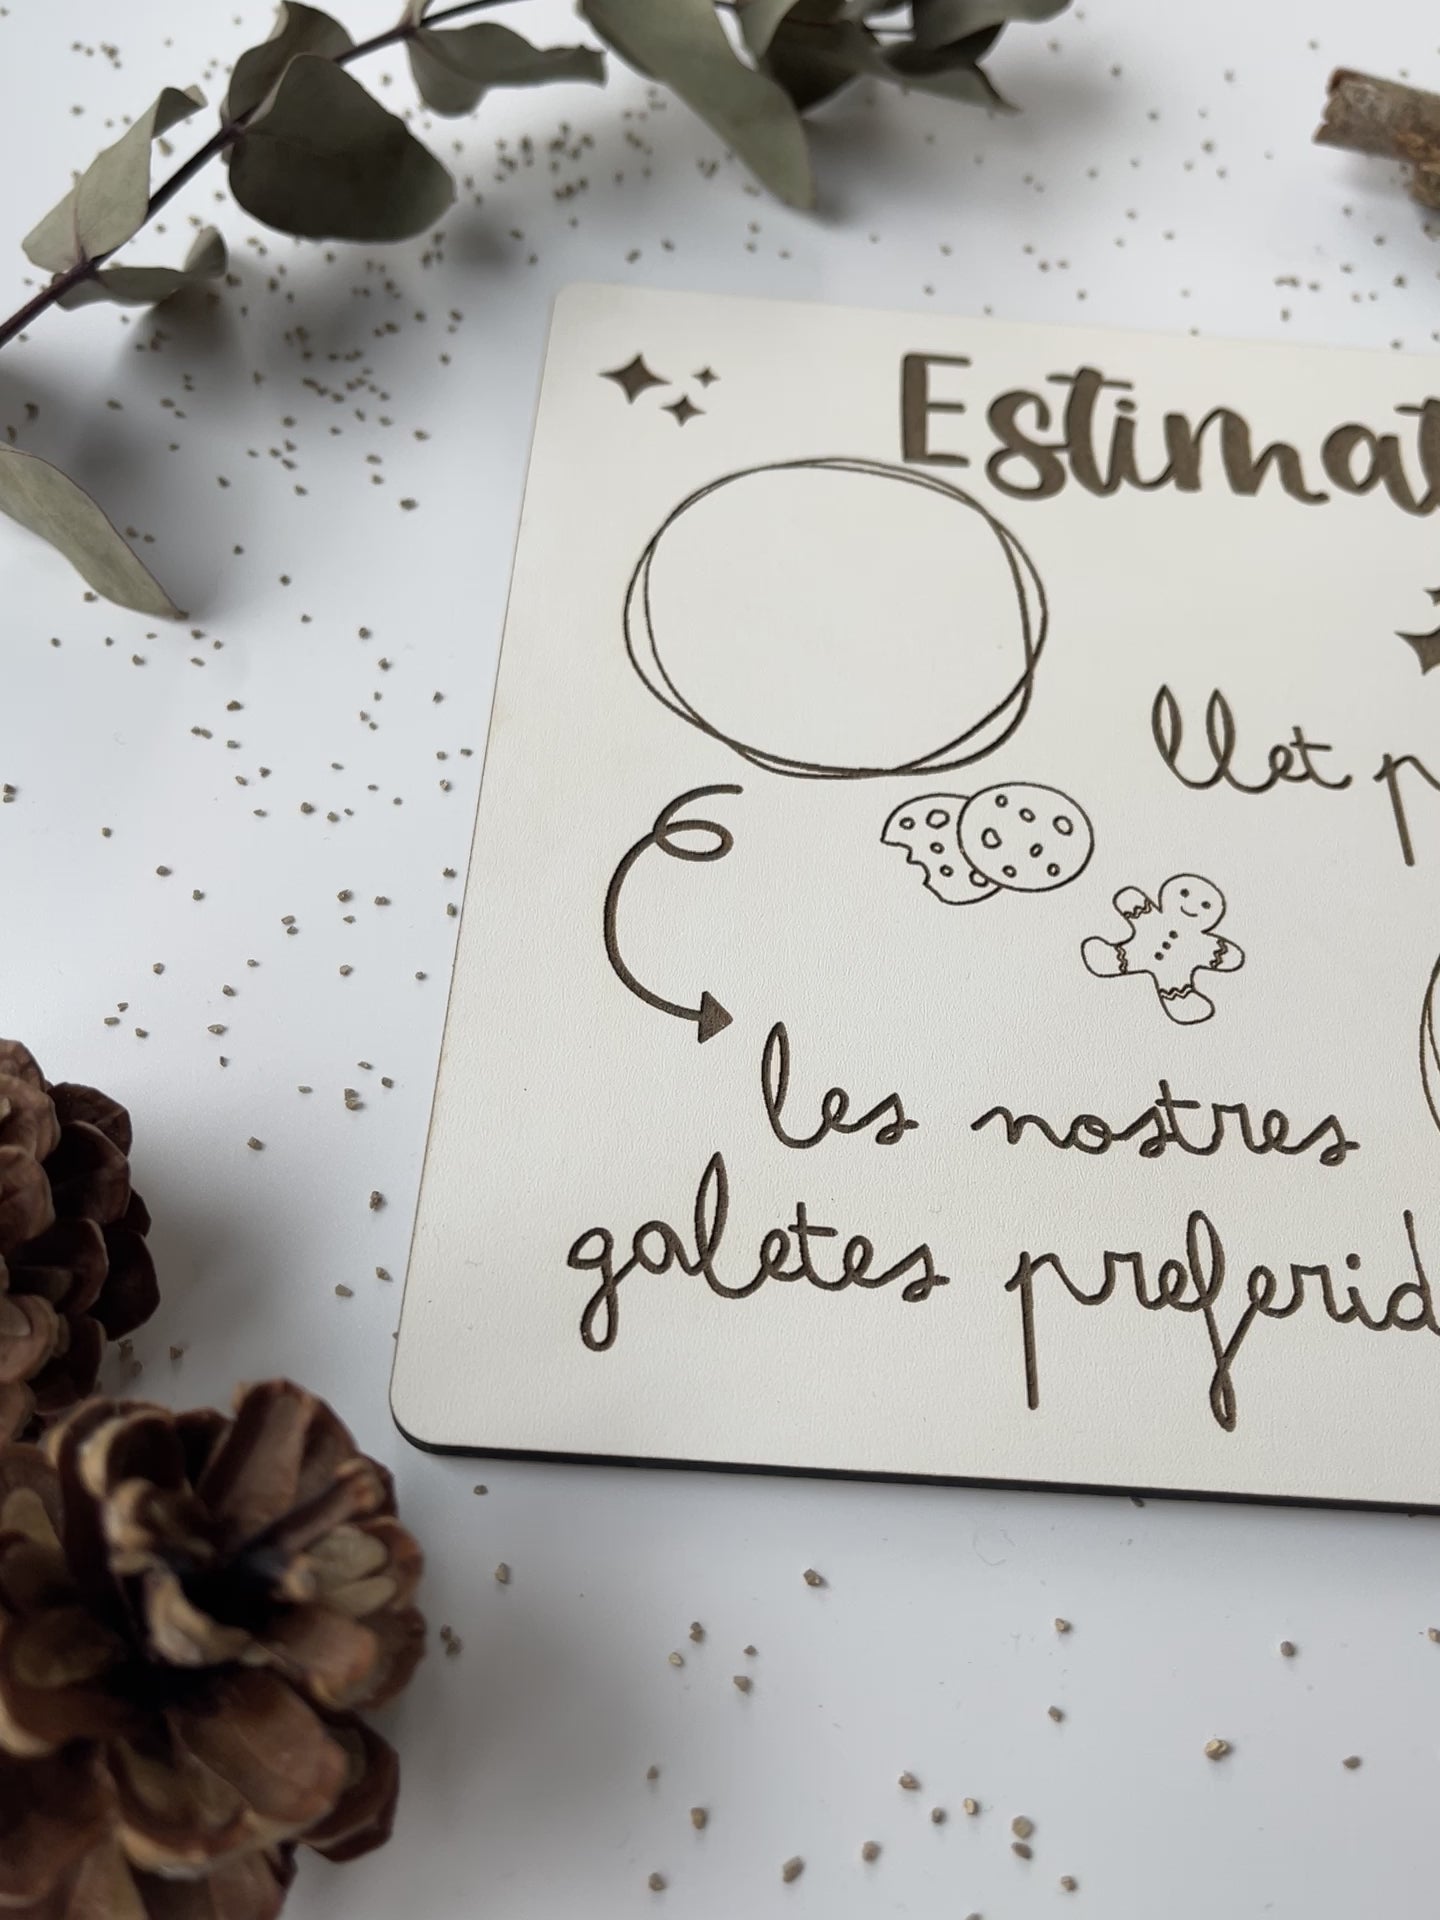 Estimat
llet p
les nostres
galetes preferid